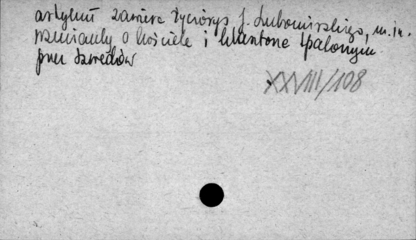 artykuł zawiera życiorys J. Lubomirskiego, m.in.
wzmianki o kościele i klasztorze spalonym
przez Szwedów
XXVIII/108